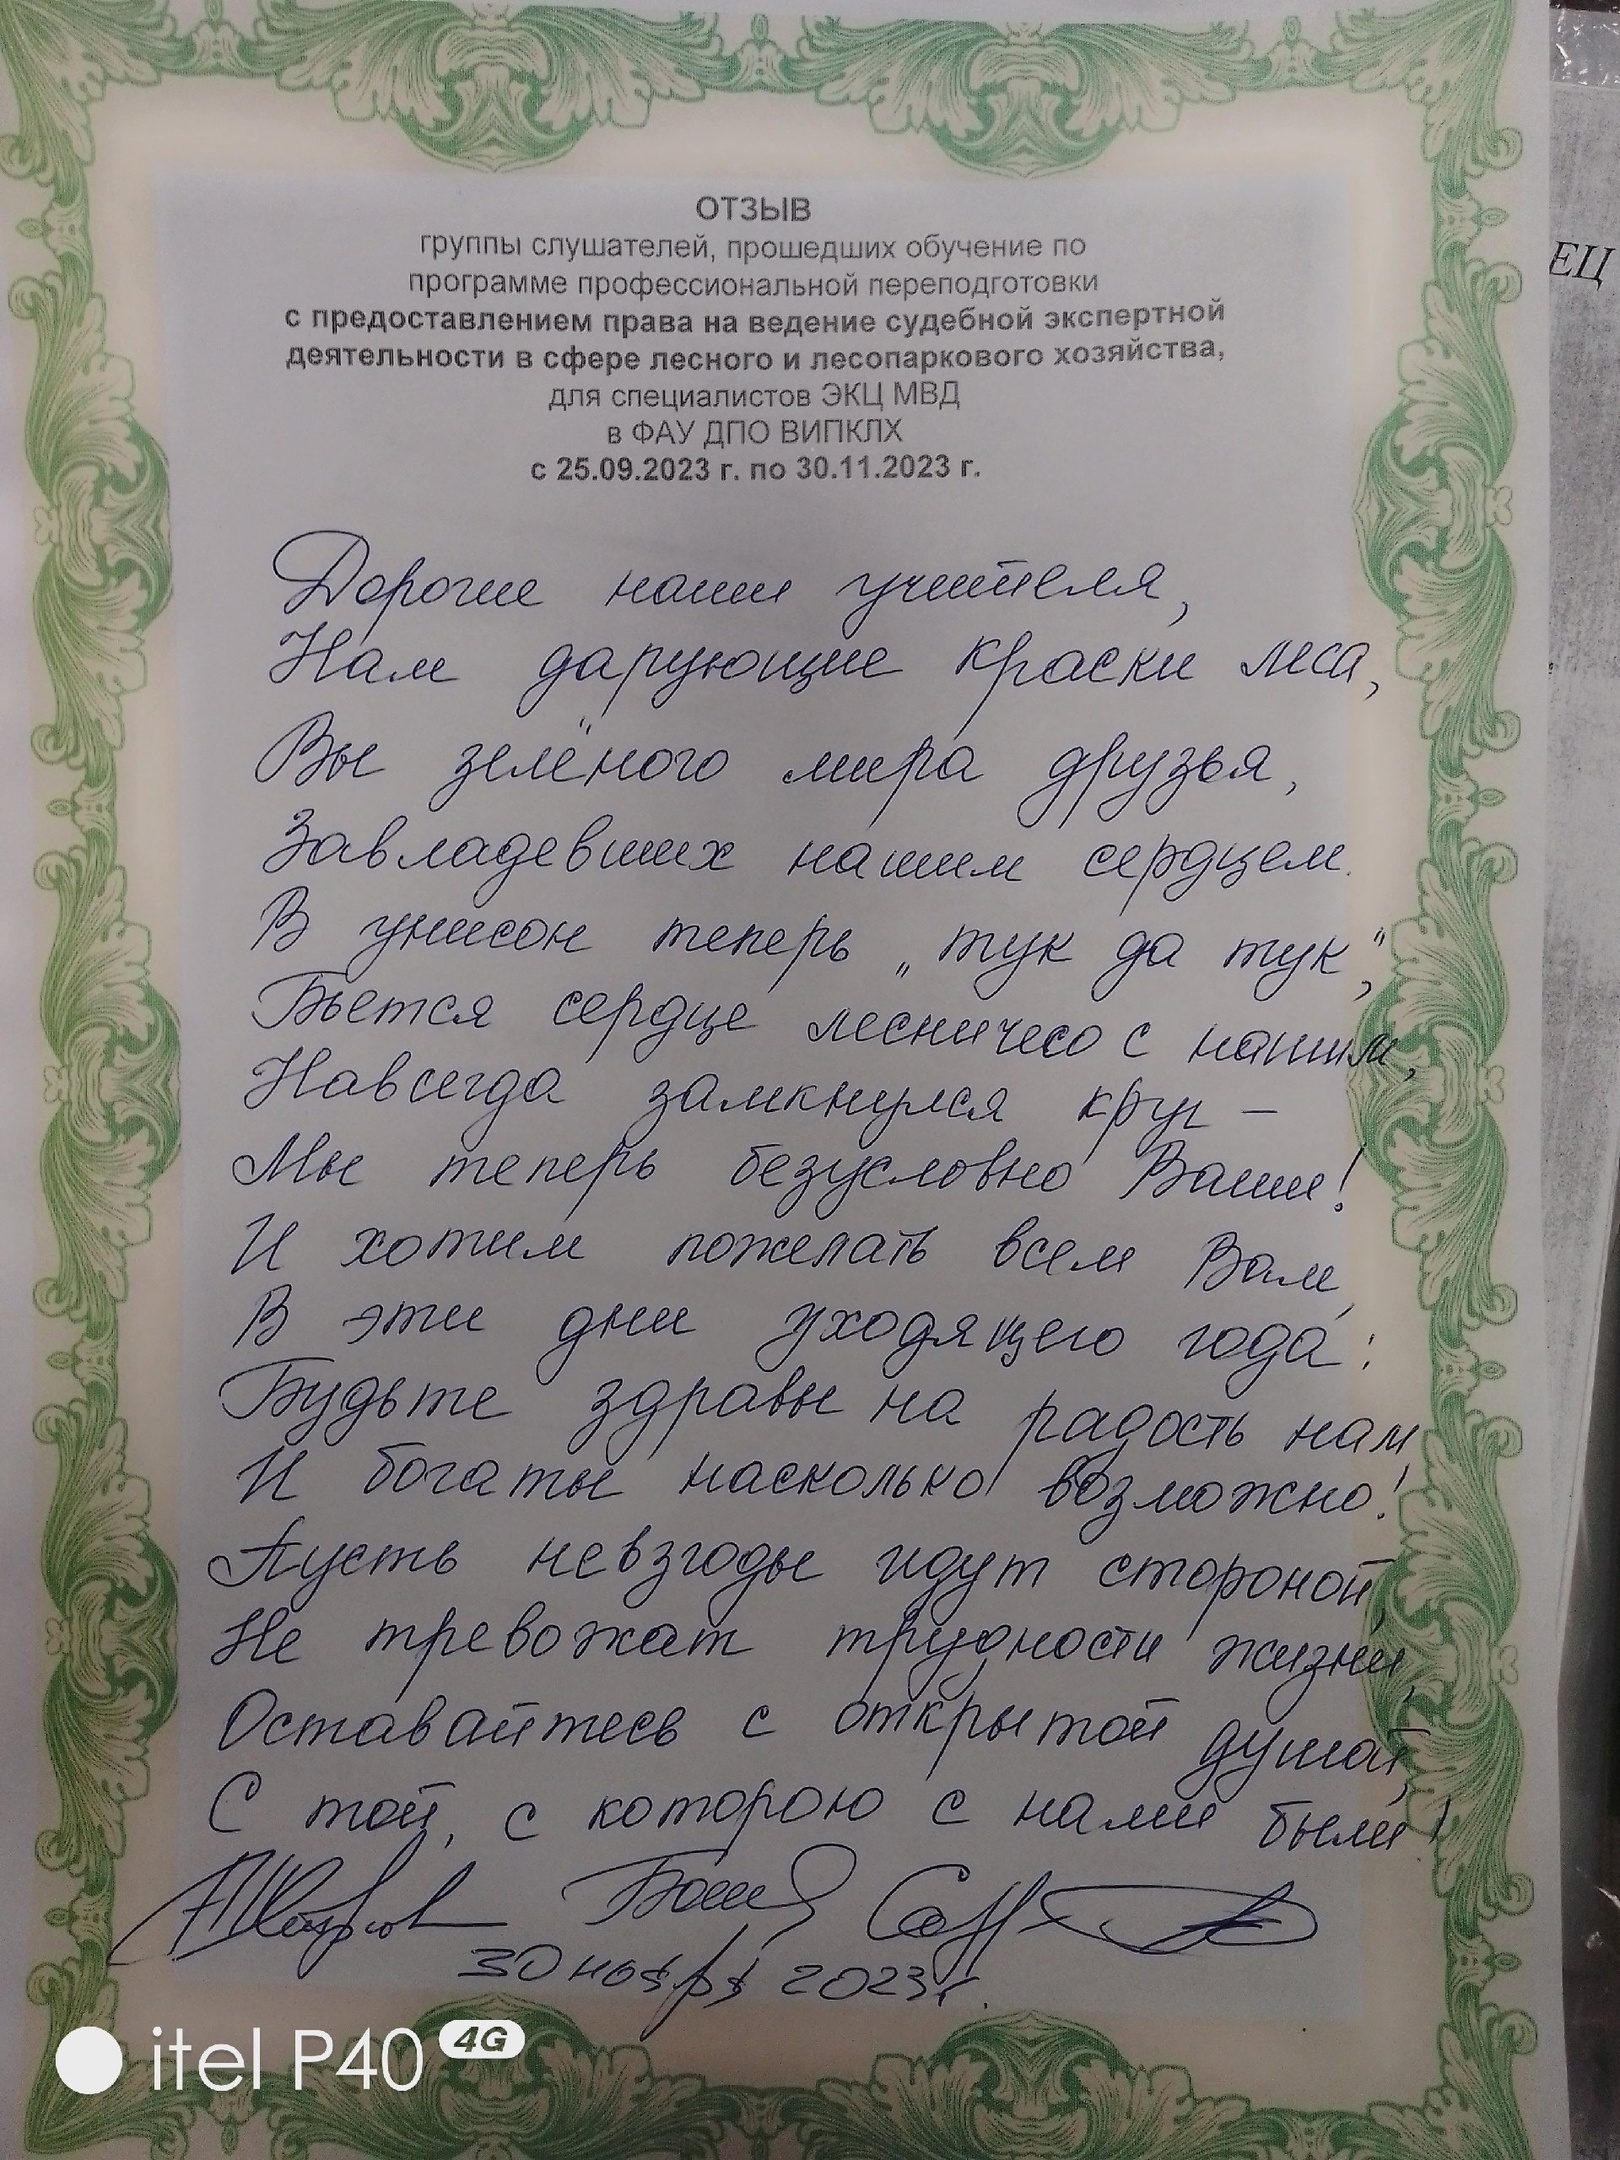 ОТЗЫВ
группы слушателей, прошедших обучение по
программе профессиональной переподготовки
с предоставлением права на ведение судебной экспертной
деятельности в сфере лесного и лесопаркового хозяйства,
для специалистов ЭКЦ МВД
в ФАУ ДПО ВИПКЛХ
с 25.09.2023 г. по 30.11.2023 г.
Дорогие наши учителя,
Нам дарующие краски леса,
Вы зелёного мира друзья,
Завладевших нашим сердцем.
В унисон теперь „тук да тук",
Бьется сердце лесничесо с нашим,
Навсегда замкнулся круг –
Мы теперь безусловно Ваши!
И хотим пожелать всем Вам,
В эти дни уходящего года:
Будьте здравы на радость нам,
И богаты насколько возможно!
Пусть невзгоды идут стороной,
Не тревожат трудности жизни,
Оставайтесь с открытой душой,
С той, с которою с нами были!
30 ноября 2023 г.
ЕЦ
itel P40 4G